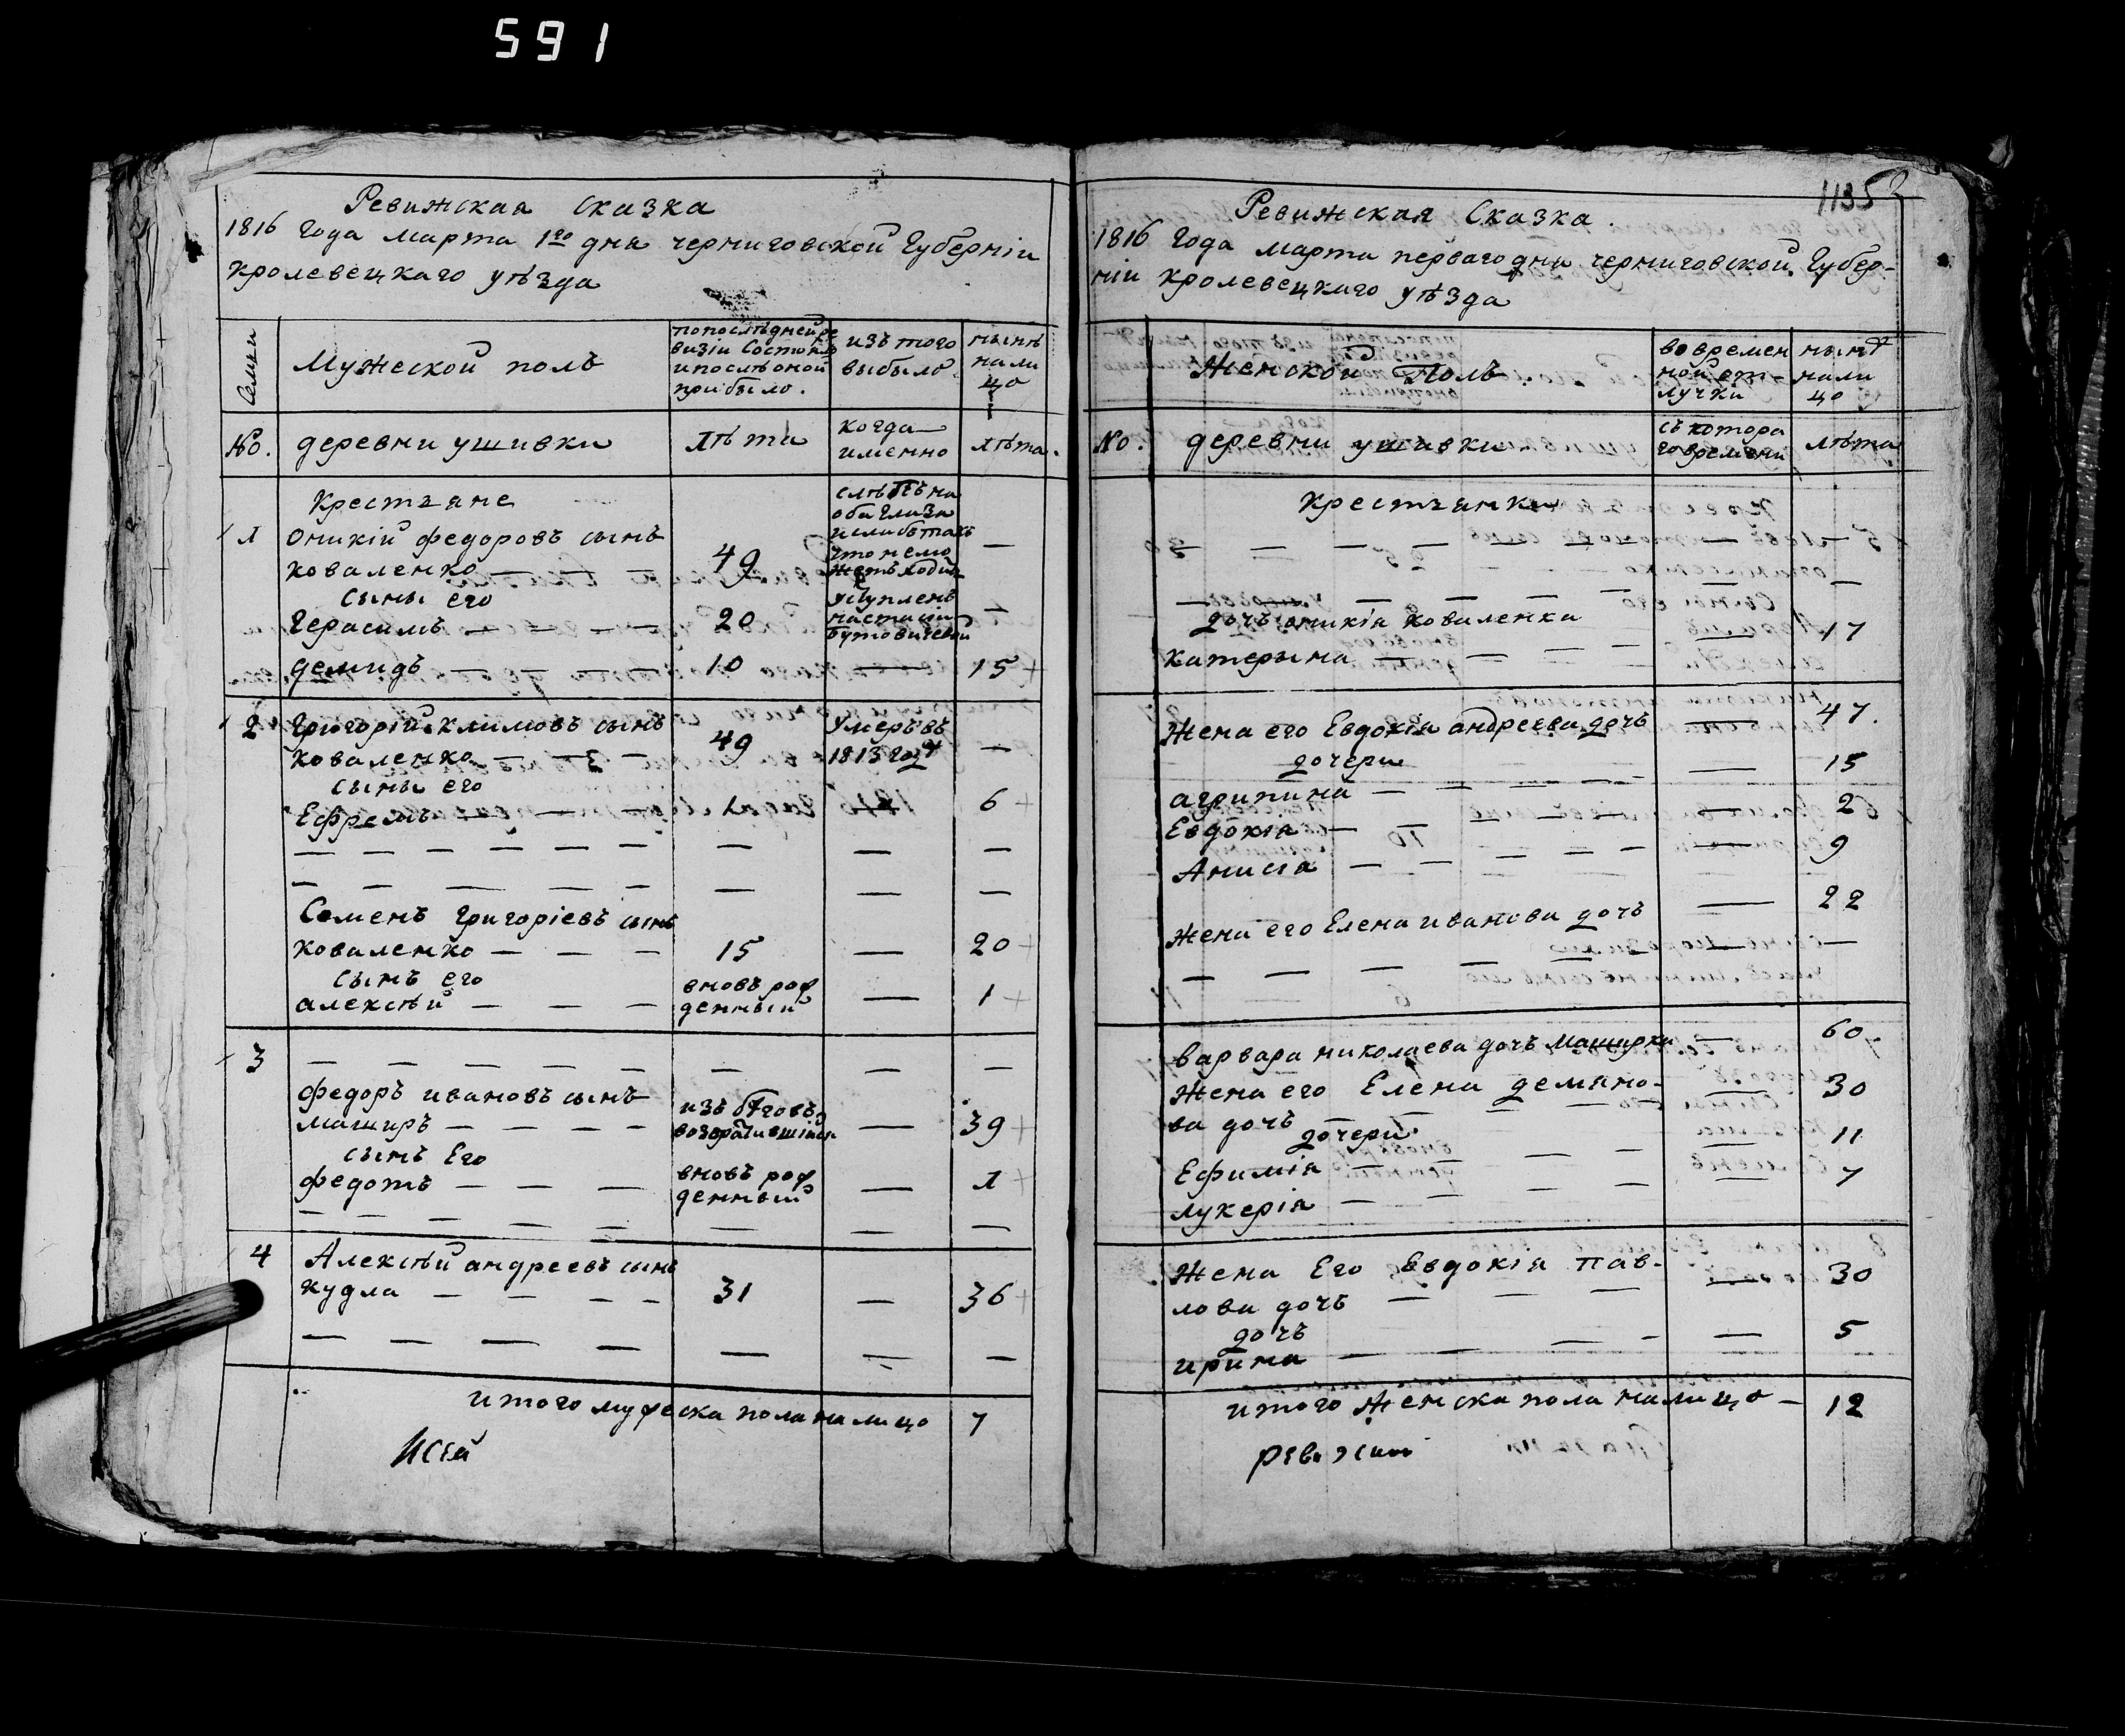 591
Ревижская Сказка
1816 Года марта 1го дня черниговской Губерніи
Кролевецкаго уѣзда
Семьи
Мужеской полъ
попослѣдней ре
визіи Состояло
и послѣ оной
прибыло.
изъ того
выбыло
нынѣ
нали
цо
No.
деревни ушивки
лѣта
когда
именно
лѣта.
Крестъяне
1
Оникій федоровъ сынъ
коваленко
49
слѣпъ на
оба Глаза
и слабъ такъ
что не мо
жетъ ходить
—
сыны его
Герасимъ — — — —
20
уступленъ
—
демидъ — — — —
10
—
15
2
Григорій климовъ сынъ
Коваленко — — —
49
Умеръ въ
1813 годѣ
—
сыны его
Ефремъ — — —
1
6
— — — — — — — — —
— — — — — — — —
Семенъ Григоріевъ сынъ
коваленко — — —
15
—
20
сынъ его
алексѣй — — —
вновь рож
денный
—
1
3
— — — — — — — —
федоръ ивановъ сынъ
маширъ — — — —
изъ бѣговъ
возвратившійся
—
39
сынъ Его
федотъ — — —
вновь рож
денный
—
1
— — — — — — — —
4
Алексѣй андреевъ сынъ
кудла — — — —
31
—
36
— — — — — — —
итого мужеска пола на лицо
7
1135
Ревижская Сказка.
1816 Года марта перваго дня черниговской Губер-
ніи кролевецкаго уѣзда
Женской Полъ.
во времен
ной от-
лучки
нынѣ
нали
цо
No.
деревни ушивки
съ котора
го времени
лѣта
Крестъянки
дочь оникія коваленка
Катерына — — — —
17
Жена его Евдокія андреева дочъ
—
47.
дочери
агрипина — — — —
—
15
Евдокія — —
—
2
Анисія — — — — —
—
9
Жена его Елена иванова дочъ
—
22
— — — — — —
варвара николаева дочъ Маширка
—
60
Жена его Елена демяно-
ва дочъ
—
30
дочери
Ефимія — — — —
—
11
лукерія — — — —
—
7
Жена Его Евдокія пав-
лова дочъ — — —
—
30
дочъ
ирина — — — —
—
5
итого Женска пола налицо —
12